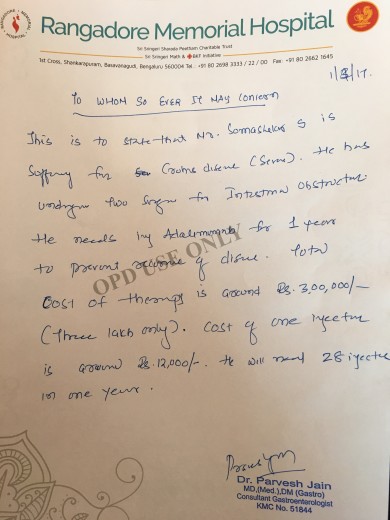 RANGADORE MEMORIAL HOSPITAL
Rangadore Memorial Hospital
Sri Sringeri Sharada Peetham Charitable Trust
Sri Sringeri Math & BKF Initiative
1st Cross, Shankarapuram, Basavanagudi, Bengaluru 560004 Tel: +91 80 2698 3333 / 22 / 00 Fax: +91 80 2662 1645
TO WHOM SO EVER IT MAY CONCERN
This is to state that Mr. Somashekar S is
suffering for Crohns disease (Severe). He has
undergone two surgeries for Intestinal obstruction
He needs inj Adalimumab for 1 year
to prevent recurrence of disease. Total
cost of therapy is around Rs. 3,00,000/-
(three lakh only). Cost of one injection
is around Rs. 12,000/-. He will need 28 injections
in one year.
OPD USE ONLY
Dr. Parvesh Jain
MD,(Med.),DM (Gastro)
Consultant Gastroenterologist
KMC No. 51844